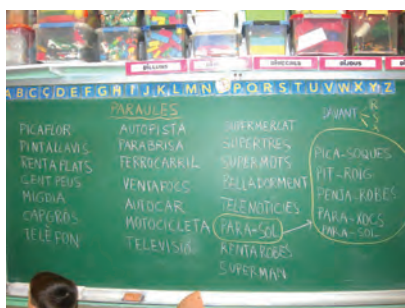 DILLUNS
DIMECRES
DIJOUS
A B C Ç D E F G H I J K L M N O P Q R S T U V W X Y Z
PARAULES
PICAFLOR
PINTALLAVIS
RENTAPLATS
CENTPEUS
MIGDIA
CAPGRÒS
TELÈFON
AUTOPISTA
PARABRISA
FERROCARRIL
VENTAFOCS
AUTOCAR
MOTOCICLETA
TELEVISIÓ
SUPERMERCAT
SUPERTRES
SUPERMOTS
BELLADORMENT
TELENOTÍCIES
PARA-SOL
RENTAROBES
SUPERMAN
DAVANT
R
S
X
PICA-SOQUES
PIT-ROIG
PENJA-ROBES
PARA-XOCS
PARA-SOL